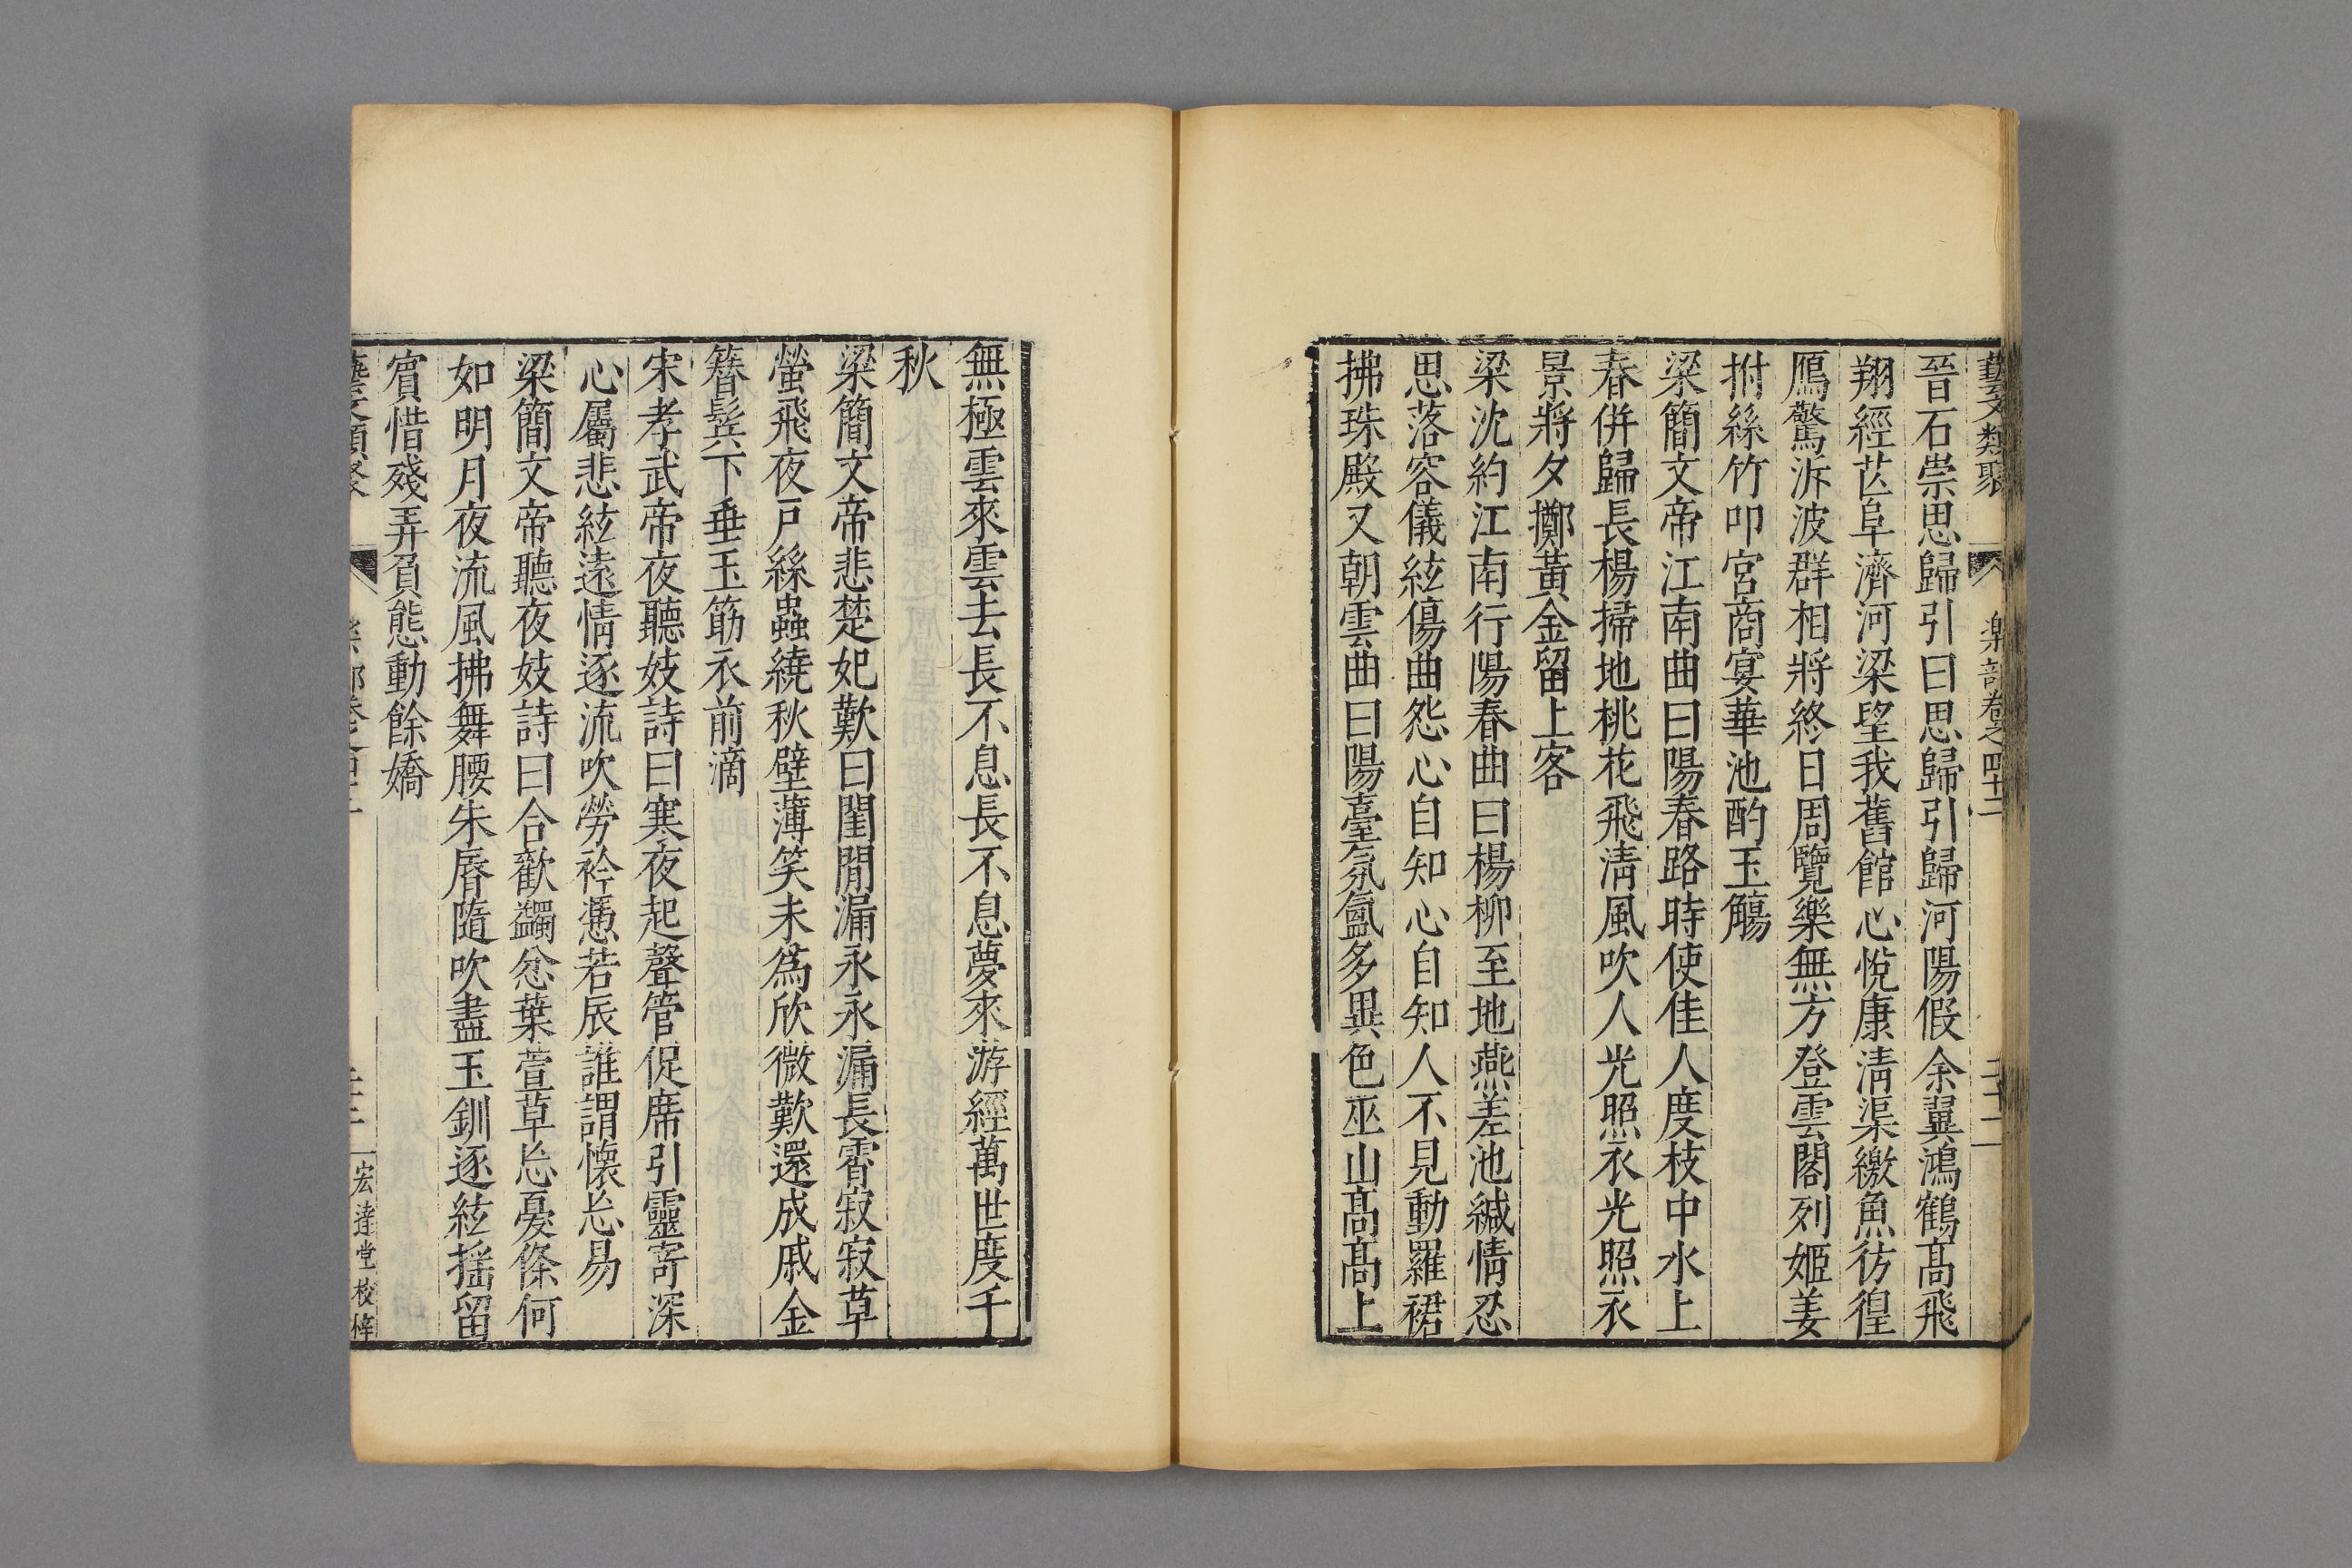 藝文類聚 樂部卷之四十二 二十二
晉石崇思歸引曰思歸引歸河陽假余翼鴻鶴髙飛
翔經芒阜濟河梁望我舊館心悅康清渠繳魚彷徨
鴈驚泝波群相將終日周覽樂無方登雲閣列姬姜
拊絲竹叩宮商宴華池酌玉觴
梁簡文帝江南曲曰陽春路時使佳人度枝中水上
春併歸長楊掃地桃花飛淸風吹人光照衣光照衣
景將夕擲黃金留上客
梁沈約江南行陽春曲曰楊柳至地燕差池緘情忍
思落容儀絃傷曲怨心自知心自知人不見動羅裙
拂珠殿又朝雲曲曰陽臺氛氳多異色巫山髙髙上
無極雲來雲去長不息長不息夢來游經萬世度千
秋
梁簡文帝悲楚妃歎曰閨閒漏永永漏長霄寂寂草
螢飛夜戸絲蟲繞秋壁薄笑未爲欣微歎還成戚金
簪鬂下垂玉筯衣前滴
宋孝武帝夜聽妓詩曰寒夜起聲管促席引靈寄深
心屬悲絃遠情逐流吹勞衿憑若辰誰謂懐忘易
梁簡文帝聽夜妓詩曰合歡蠲忿葉萱草忘憂條何
如明月夜流風拂舞腰朱脣隨吹盡玉釧逐絃揺留
賔惜殘弄負態動餘嬌
宏逹堂校梓